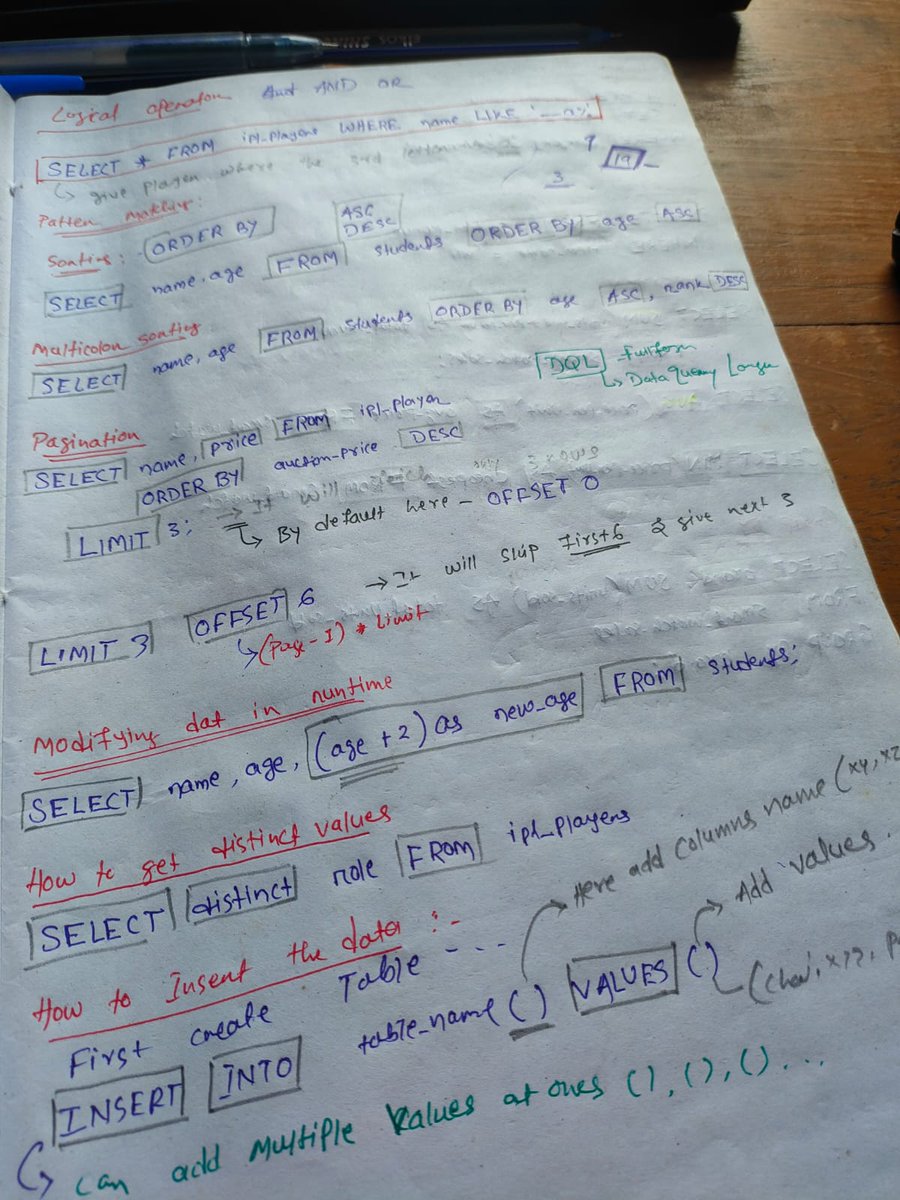 Logical operaton AND OR
SELECT * FROM ipl-players WHERE name LIKE '__n%'
↳ give player where the 3rd
19 _
3
Patten
Sonting : ORDER BY ASC
DESC
SELECT name, age FROM students ORDER BY age ASC
Multicolon sonting
SELECT name, age FROM students ORDER BY age ASC, rank DESC
DQL - Fullform
↳ Data Query
Pagination
SELECT name, price FROM ipl-player
ORDER BY auction-price DESC
LIMIT 3; → It will only 3 rows
↳ By default here - OFFSET 0
LIMIT 3 OFFSET 6 → It will skip first 6 & give next 3
↳ (Page - 1) * Limit
Modifying dat in runtime
SELECT name, age, (age +2) as new_age FROM students;
How to get distinct values
SELECT distinct role FROM ipl_players
→ Here add columns name (xy, xz
How to Insent the data :-
→ Add values.
First create Table - - -
INSERT INTO table_name () VALUES ()
↳ can add multiple values at ones (), (), () . . .